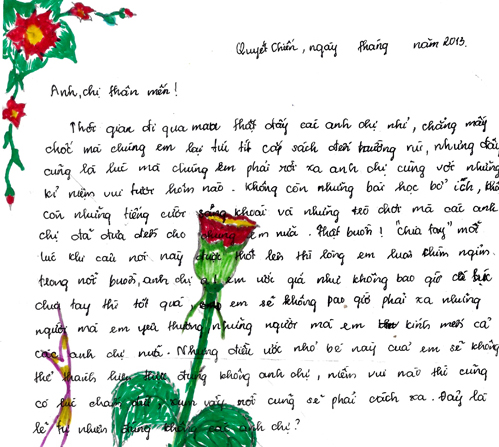 Quyết Chiến, ngày tháng năm 2013.
Anh, chị thân mến!
Thời gian đi qua mau thật đấy các anh chị nhỉ, chẳng mấy
chốc mà chúng em lại tíu tít cắp sách đến trường nữ, nhưng đấy
cũng là lúc mà chúng em phải rời xa anh chị cùng với những
kỉ niệm vui tươi hôm nào. Không còn những bài học bổ ích, khô
còn những tiếng cười sảng khoái và những trò chơi mà các anh
chị đã đưa đến cho chúng em nữa. Thật buồn! "Chia tay" mỗi
lúc khi câu nói này được thốt lên thì lòng em luôn
trong nỗi buồn, anh chị ạ, em ước giá như không bao giờ
chia tay thì tốt quá, em sẽ không bao giờ phải xa những
người mà em yêu thương, những người mà em kính mến cả
các anh chị nữa. Nhưng điều ước nhỏ bé này của em sẽ không
thể thành hiện thực đúng không anh chị, niềm vui nào thì cũng
có lúc vậy nơi cũng sẽ phải cách xa. Đấy là
lẽ tự nhiên đúng không các anh chị?